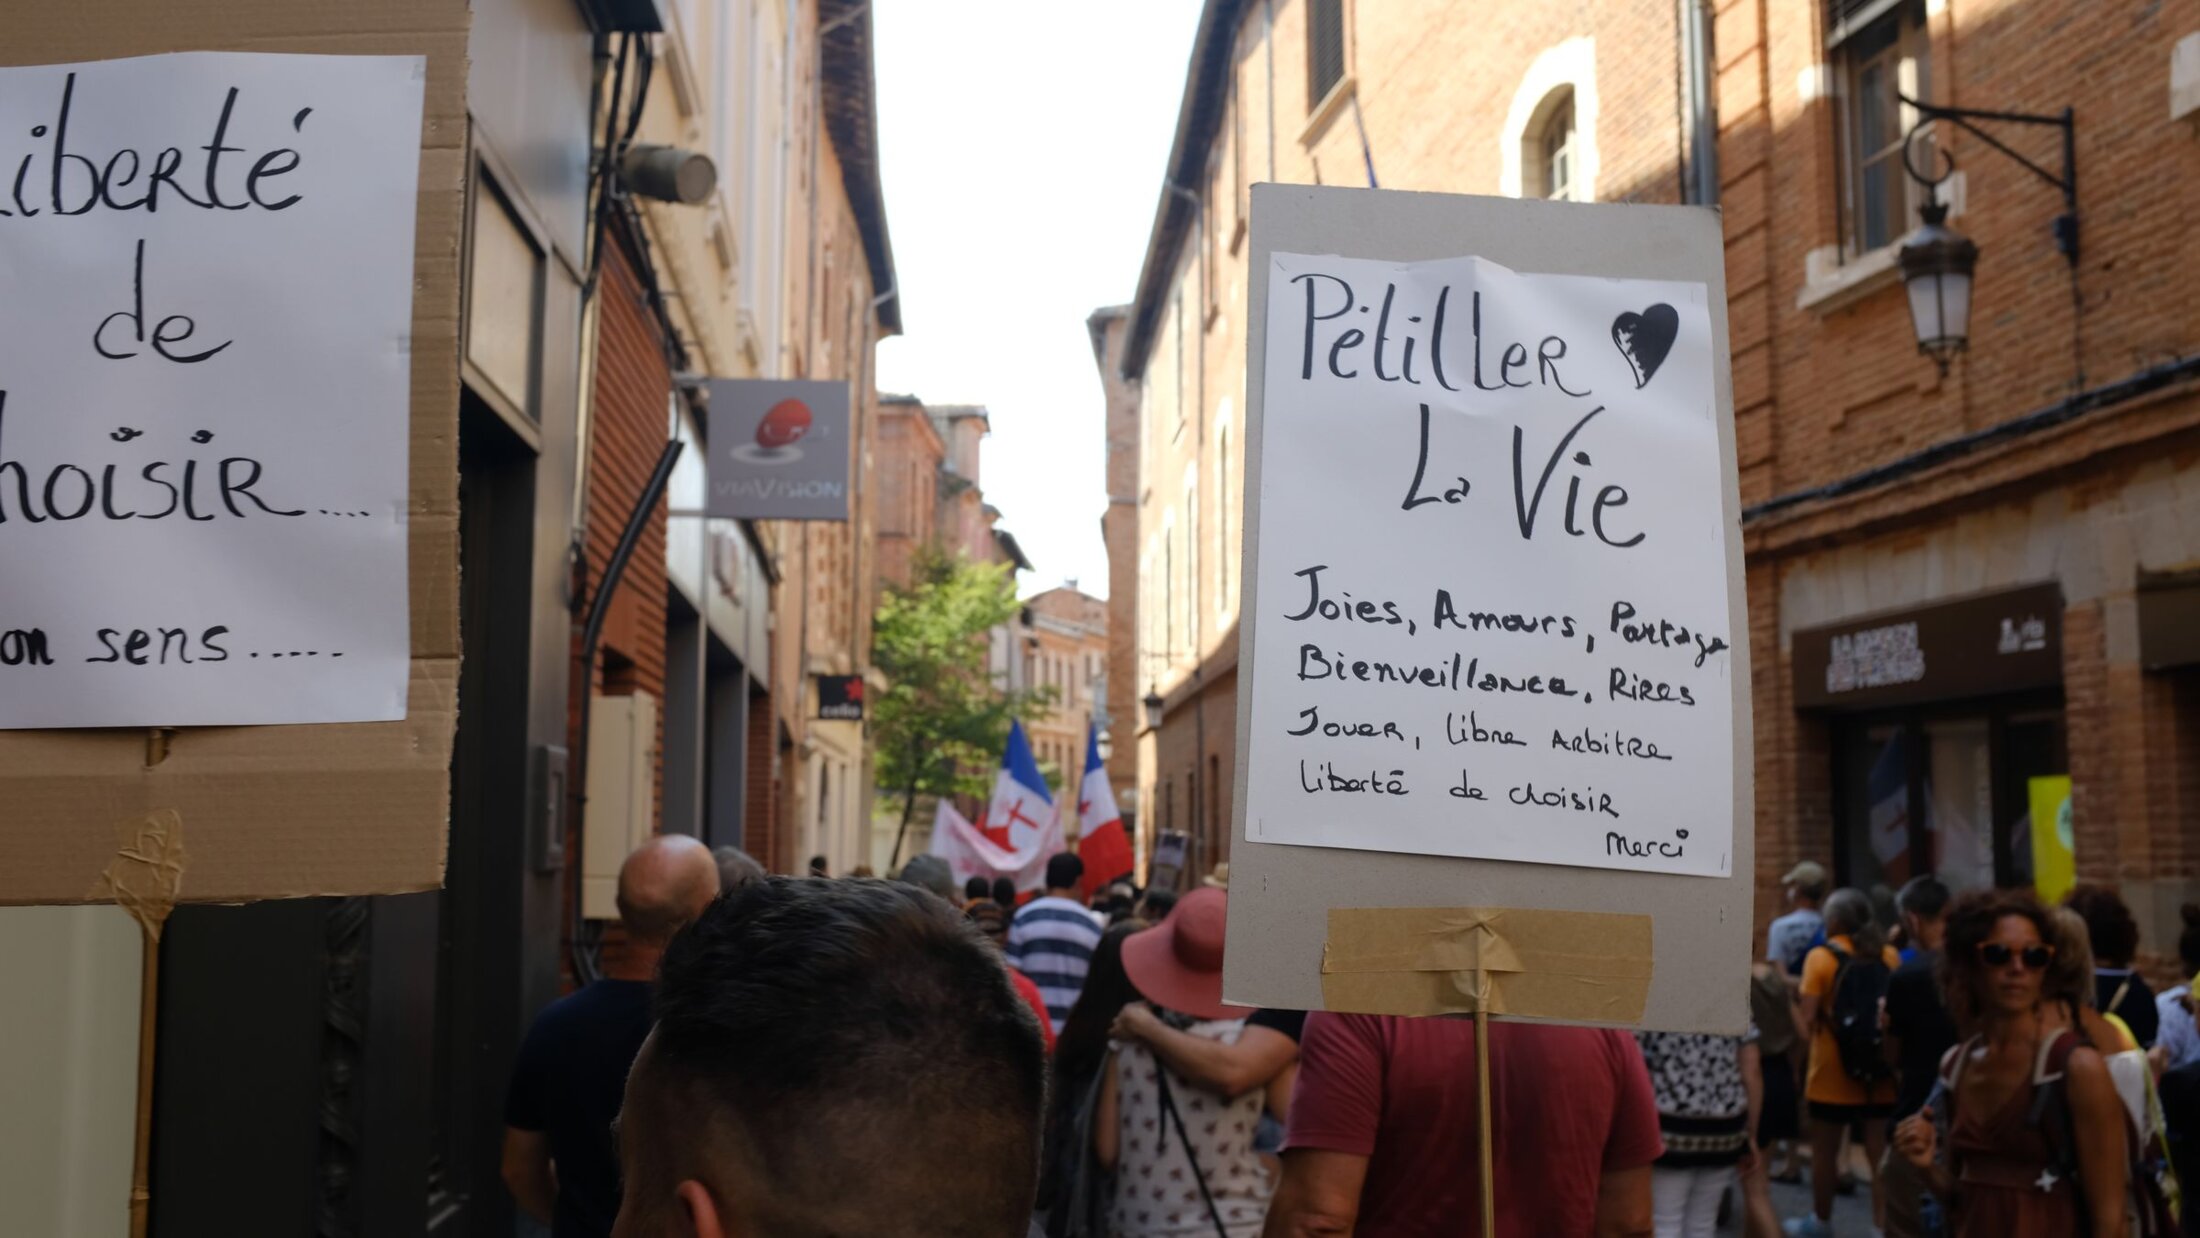 iberté
de
hoisir....
on sens.....
VIAVISION
celio
Pétiller
La Vie
Joies, Amours, Partage
Bienveillance, Rires
Jouer, libre Arbitre
liberté de choisir
Merci